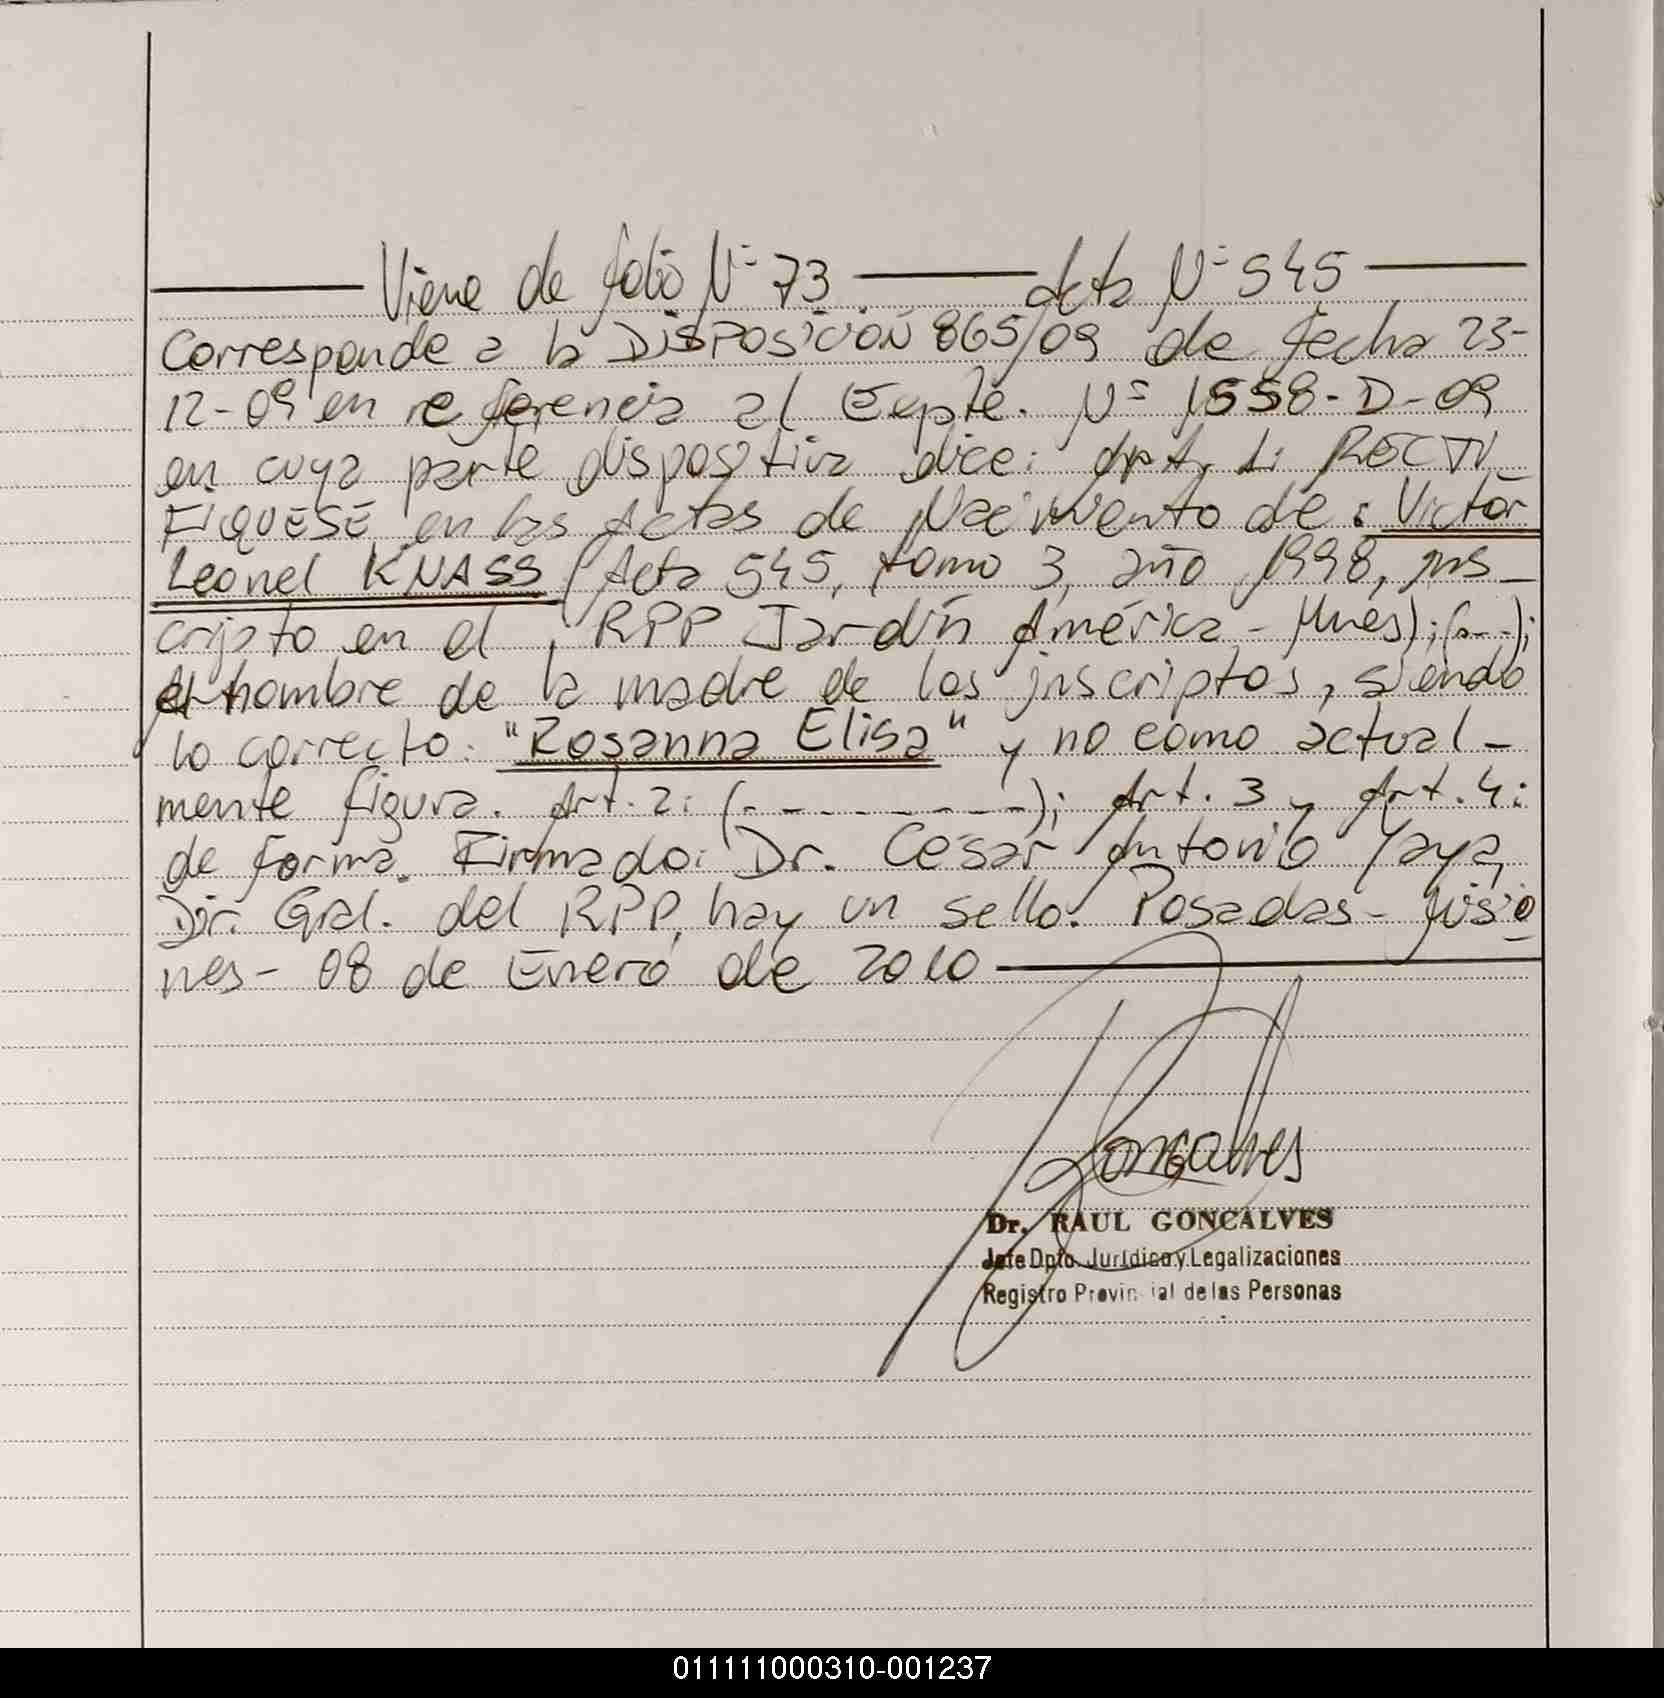 Viene de folio Nº 73 Acta Nº 545
Corresponde a la DISPOSICIÓN 865/09 de fecha 23-
12-09 en referencia al Expte. Nº 1558-D-09
en cuya parte dispositiva dice: Art. 1: RECTI
FIQUESE en las Actas de Nacimiento de: Victor
Leonel KNASS (Acta 545, tomo 3, año 1998, ins-
cripto en el RPP Jardín América - Mnes); (...);
el nombre de la madre de los inscriptos, siendo
lo correcto: "Rosanna Elisa" y no como actual-
mente figura. Art. 2: (- - - - - - - - -); Art. 3 y Art. 4:
de forma. Firmado: Dr. César Antonio Yaya,
Dir. Gral. del RPP, hay un sello. Posadas - Misio
nes - 08 de Enero de 2010
Goncalves
Dr. RAUL GONCALVES
Jefe Dpto. Jurídico y Legalizaciones
Registro Provincial de las Personas
011111000310-001237